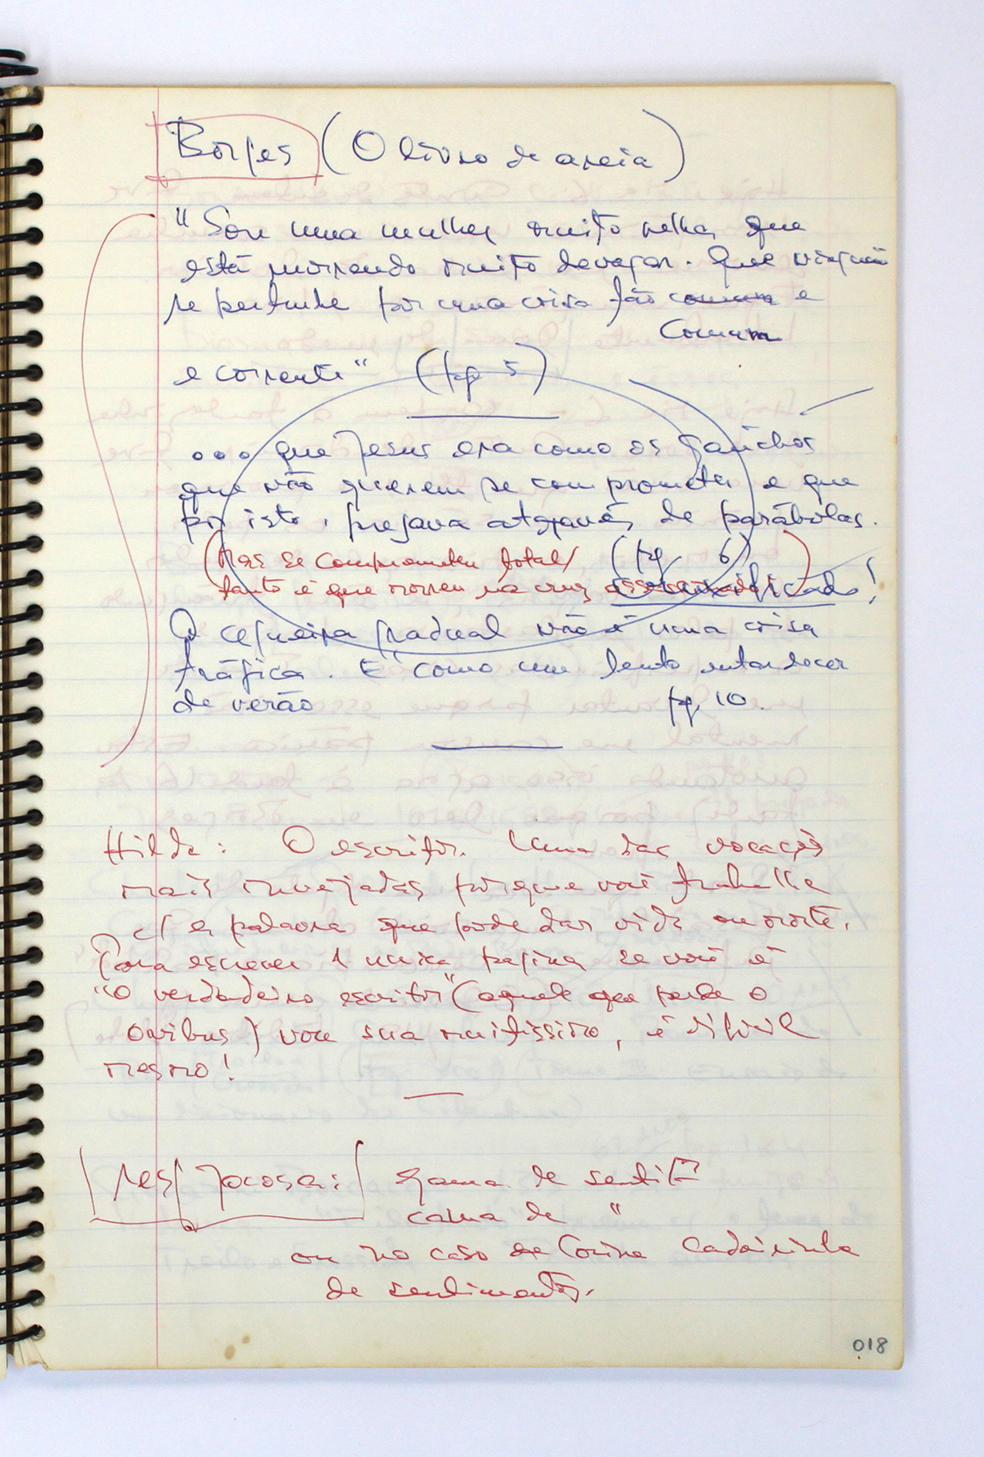 Borges (O livro de areia)
"Sou uma mulher muito velha, que
está morrendo muito devagar. Que ninguém
se perturbe por uma coisa tão comum e
comum
e corrente" (pg 5)
... que Jesus era como os gaúchos
que não querem se comprometer e que
por isto, pregava através de parábolas.
(Mas se comprometeu total/ (pg 6)
tanto é que morreu na cruz !
A cegueira gradual não é uma coisa
trágica. É como um lento entardecer
de verão pg. 10.
Hilda: O escritor. Uma das vocações
mais invejadas porque você trabalha
c/ a palavra que pode dar vida ou morte.
Para escrever 1 única página se você é
"o verdadeiro escritor" (aquele que perde o
ônibus) você sua muitíssimo, é difícil
mesmo!
Jocosa: gama de sentim
cama de "
ou no caso de Corina cadeirinha
de sentimentos.
018